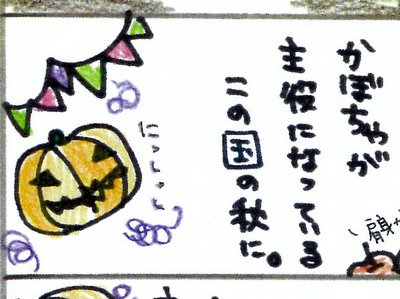 かぼちゃが
主役になっている
この国の秋に。
にっしっし
肩身